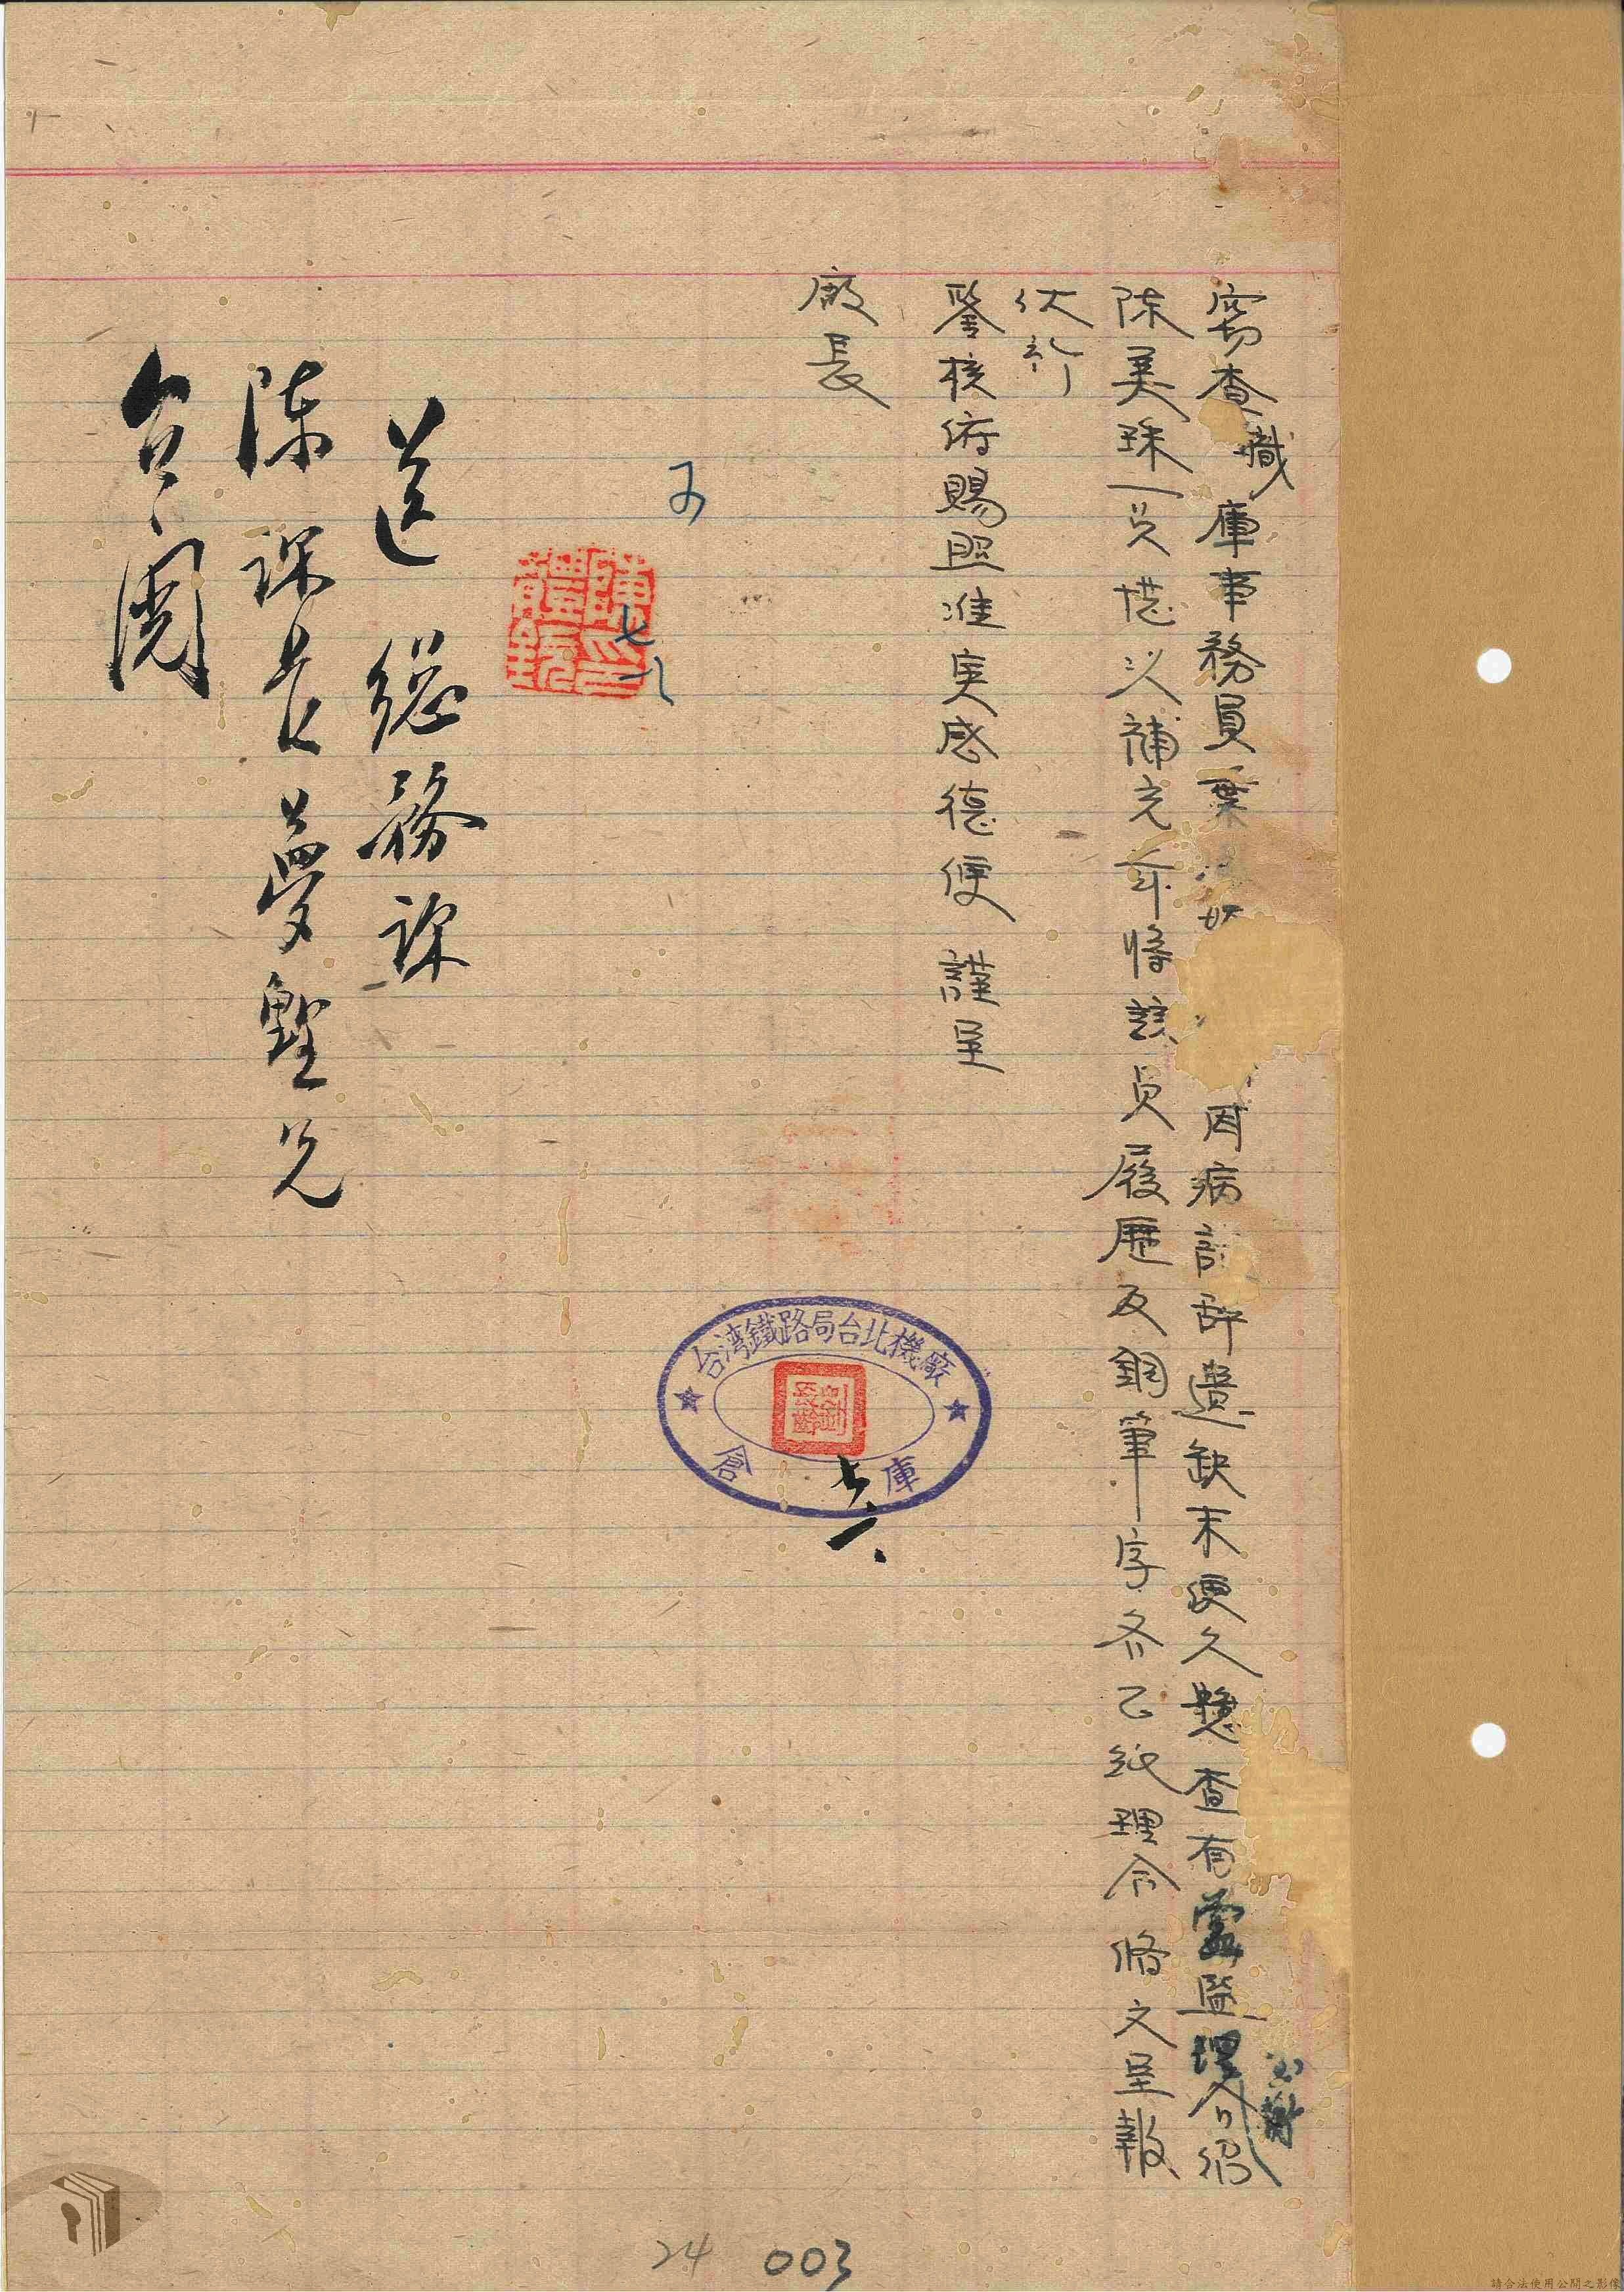 竊查職庫事務員葉因病辭遺缺未便久懸查有監理介紹
陳美珠一員堪以補充茲將該員履歷及鋼筆字各乙紙理合備文呈報
伏祈
鑒核俯賜照准实感德便 謹呈
廠長
可
七八
台湾鐵路局台北機廠
倉庫
七、一、
送總務課
陳課長夢熊兄
台閱
24 003
請合法使用公開之影像